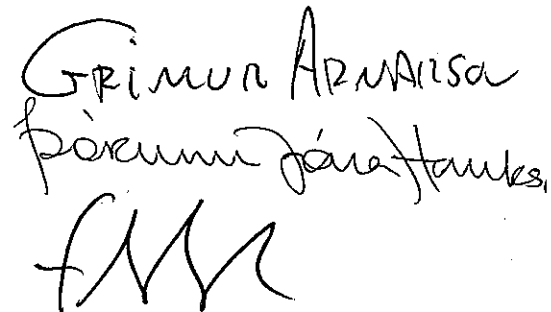 GRÍMUR ARNARSO
Þórunn Jóna Hauks.